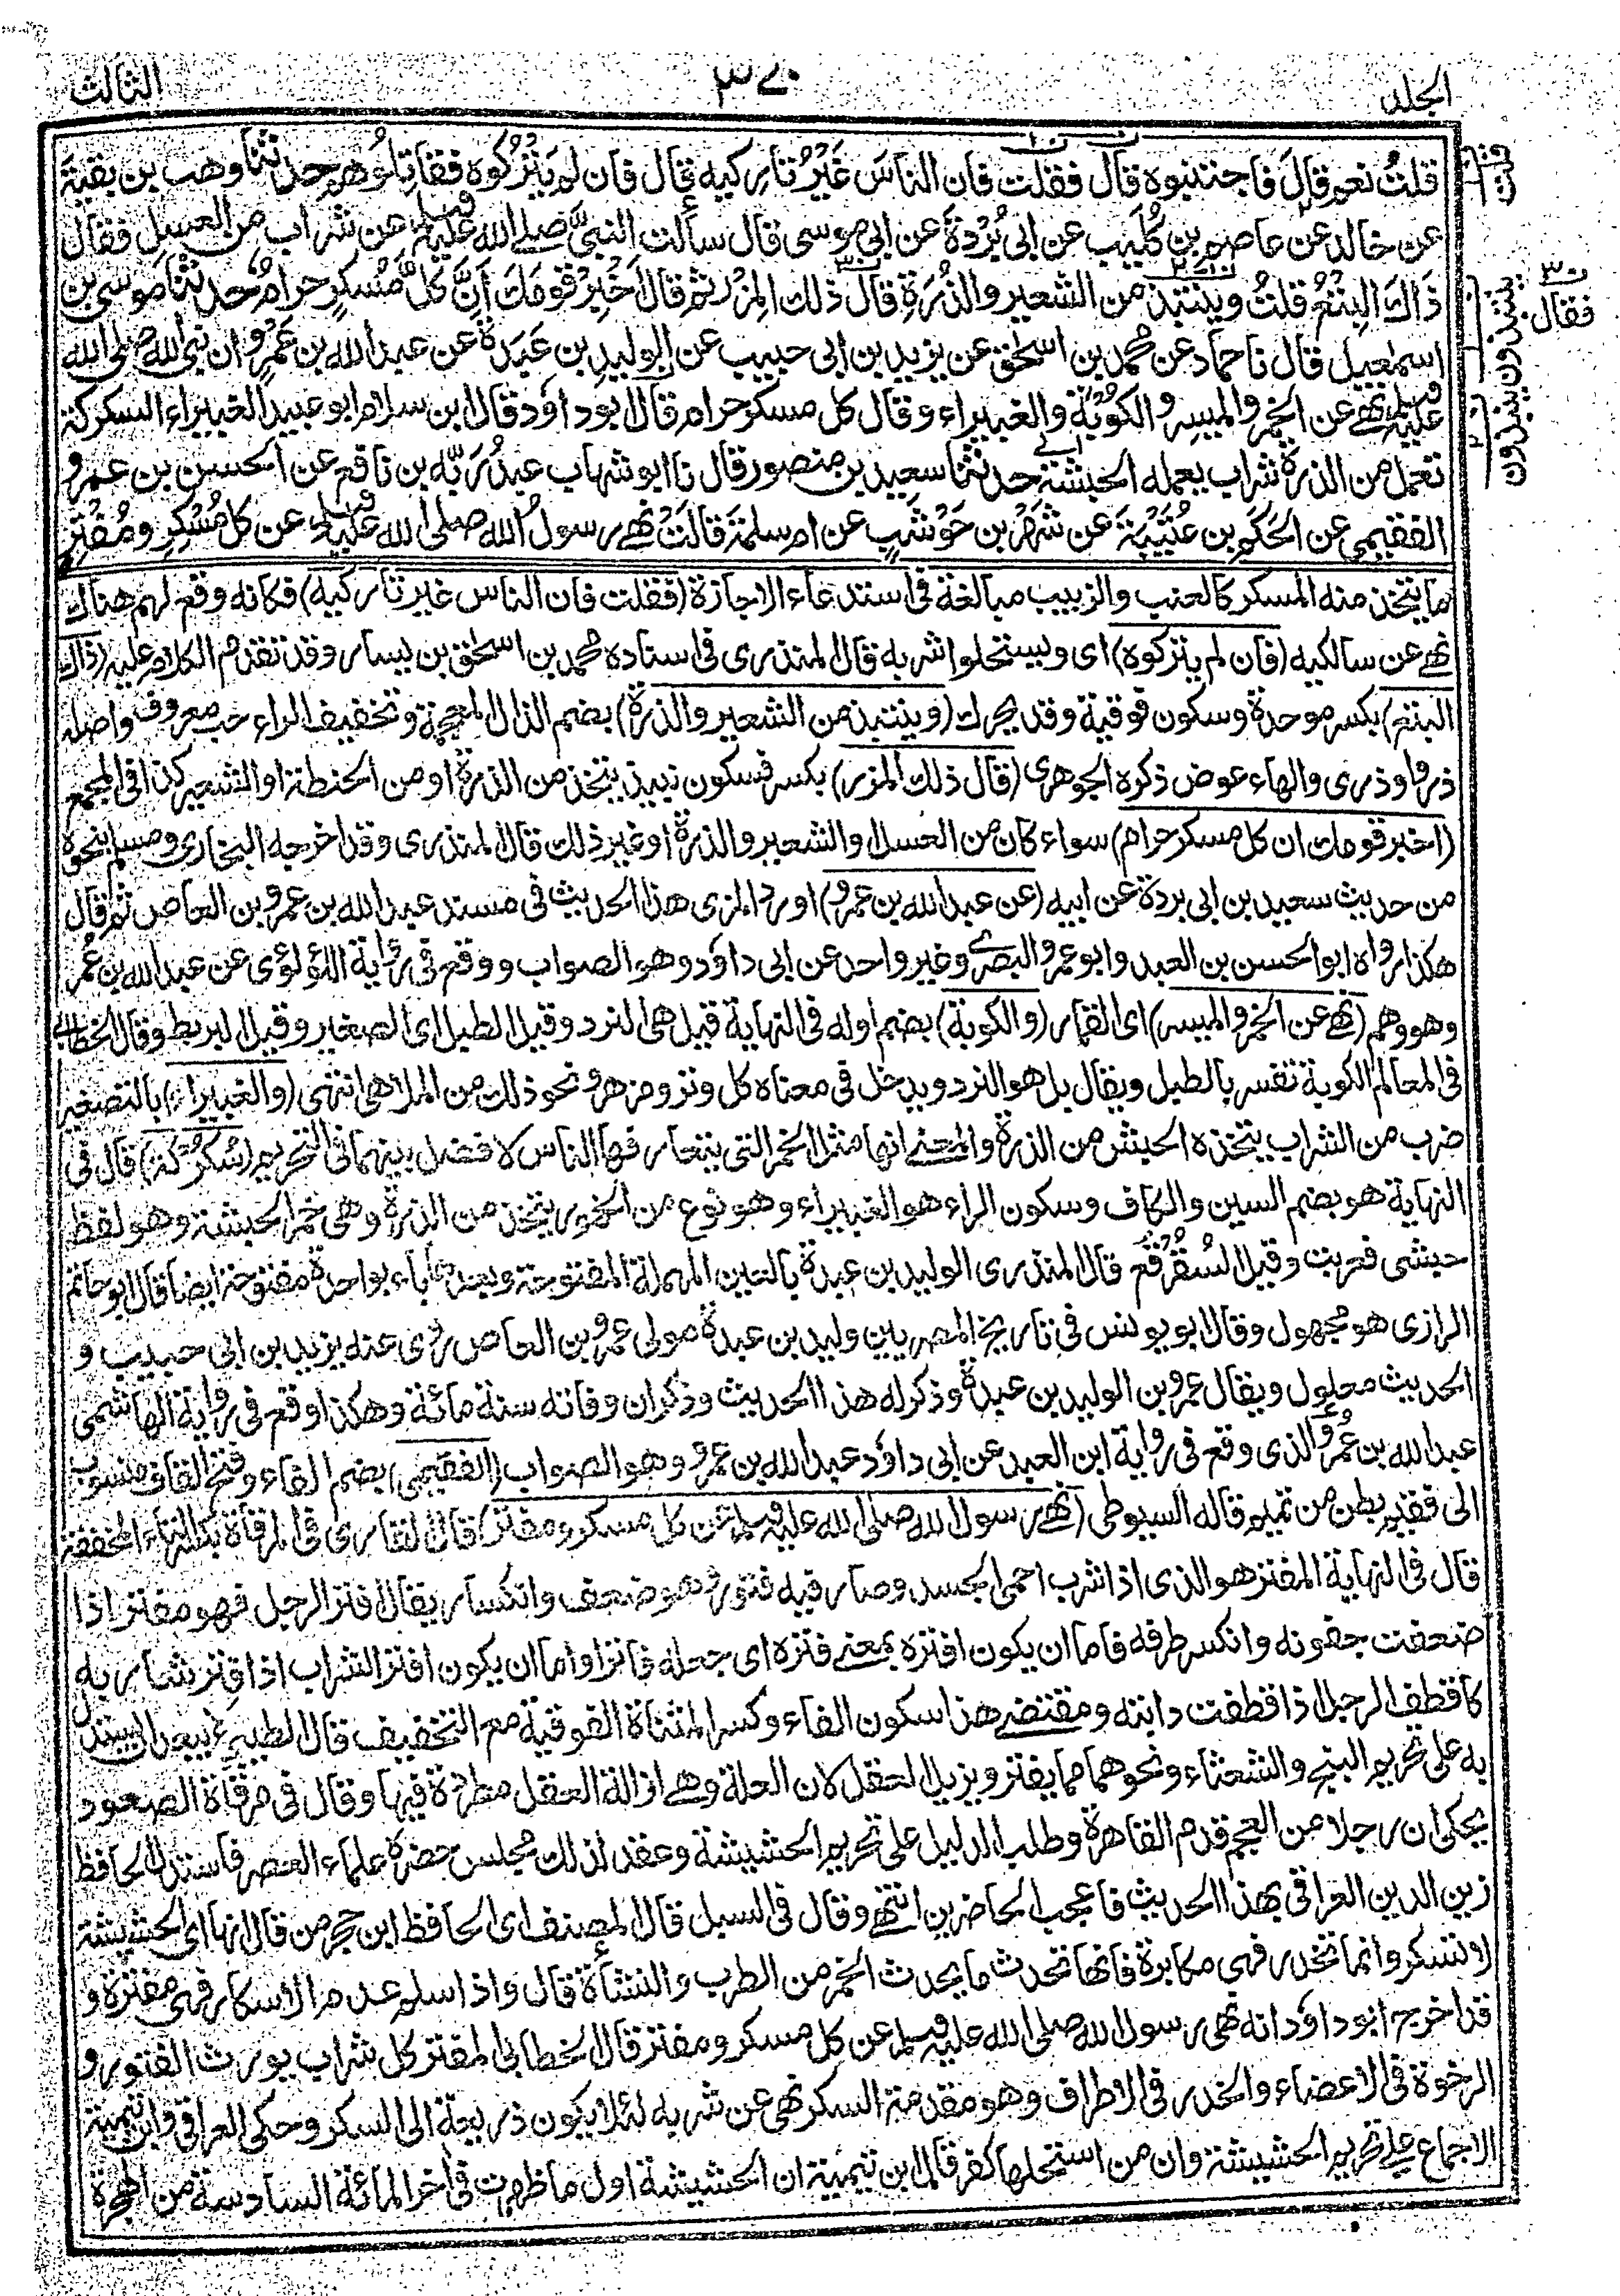 الجلد
٣٧٠
الثالث
قلتُ نعم قال فاجتنبوه قال فقلت فان الناسَ غَيْرُ تاركيه قال فان لم يَتْرُكوه فقاتِلُوهم حدثنا وهب بن بقية
عن خالد عن عاصم بن كُلَيب عن ابى بُرْدة عن ابى موسى قال سألت النبىَّ صلے الله عليه وسلم عن شراب من العسل فقال
ذاك البِتْعُ قلتُ وينتبذ من الشعير والذُرَةِ قال ذلك المِزْر ثم قال اَخبِرْ قومَك اَنَّ كلَّ مُسْكِرٍ حرامٌ حدثنا موسى بن
اسمعيل قال نا حماد عن محمد بن اسحٰق عن يزيد بن ابى حبيب عن الوليد بن عَبَدة عن عبد الله بن عَمْرٍو ان نبى الله صلى الله
عليه وسلم نهے عن الخمر والميسر والكُوبَة والغبيراء وقال كل مسكر حرام قال ابو داؤد قال ابن سلام ابو عبيد الغبيراء السكركة
تعمل من الذرة شراب يعمله الحبشة حدثنا سعيد بن منصور قال نا ابو شهاب عبدُ رَبِّه بن نافع عن الحسن بن عمرو
الفقيمى عن الحَكَم بن عُتَيْبَة عن شَهْر بن حَوْشَبٍ عن ام سلمة قالَتْ نهے رسولُ الله صلى الله عليه وسلم عن كل مُسْكِرٍ ومُفْتِرٍ
ما يتخذ منه المسكر كالعنب والزبيب مبالغة فى استدعاء الاجازة (فقلت فان الناس غير تاركيه) فكانه وقع لهم هناك
نهے عن سالكيه (فان لم يتركوه) اى ويستحلوا شربه قال المنذرى فى اسناده محمد بن اسحٰق بن يسار وقد تقدم الكلام عليه (ذاك
البتع) بكسر موحدة وسكون فوقية وقد يحرك (وينتبذ من الشعير والذرة) بضم الذال المعجمة وتخفيف الراء حب معروف واصله
ذرو او ذرى والهاء عوض ذكره الجوهرى (قال ذلك المزر) بكسر فسكون نبيذ يتخذ من الذرة او من الحنطة او الشعير كذا فى المجمع
(اخبر قومك ان كل مسكر حرام) سواء كان من العسل والشعير والذرة او غير ذلك قال المنذرى وقد اخرجه البخارى ومسلم بنحوه
من حديث سعيد بن ابى بردة عن ابيه (عن عبد الله بن عمرو) اورد المزى هذا الحديث فى مسند عبد الله بن عمرو بن العاص ثم قال
هكذا رواه ابو الحسن بن العبد وابو عمرو البصرے وغير واحد عن ابى داؤد وهو الصواب ووقع فى رواية اللؤلؤى عن عبد الله بن عُمَر
وهو وهم (نهے عن الخمر والميسر) اى القمار (والكوبة) بضم اوله فى النهاية قيل هى النرد وقيل الطبل اى الصغير وقيل البربط وقال الخطابے
فى المعالم الكوبة تفسر بالطبل ويقال بل هو النرد ويدخل فى معناه كل وتر ومزهر ونحو ذلك من الملاهى انتهى (والغبيراء) بالتصغير
ضرب من الشراب يتخذه الحبش من الذرة والمعنے انها مثل الخمر التى يتعارفها الناس لا فضل بينهما فى التحريم (سُكُرْكة) قال فى
النهاية هو بضم السين والكاف وسكون الراء هو الغبيراء وهو نوع من الخمور يتخذ من الذرة وهى خمر الحبشة وهو لفظ
حبشى فعربت وقيل السُقُرْقَع قال المنذرى الوليد بن عبدة بالعين المهملة المفتوحة وبعدها باء بواحدة مفتوحة ايضا قال ابو حاتم
الرازى هو مجهول وقال ابو يونس فى تاريخ المصريين وليد بن عبدة مولى عمرو بن العاص روى عنه يزيد بن ابى حبيب و
الحديث معلول ويقال عمرو بن الوليد بن عبدة وذكر له هذا الحديث وذكر ان وفاته سنة مائة وهكذا وقع فى رواية الهاشمى
عبد الله بن عُمَر والذى وقع فى رواية ابن العبد عن ابى داؤد عبد الله بن عمرو وهو الصواب (الفقيمى) بضم الفاء وفتح القاف منسوب
الى فقيم بطن من تميم قاله السيوطى (نهے رسول الله صلى الله عليه وسلم عن كل مسكر ومفتر) قال القارى فى المرقاة بكسر التاء المخففة
قال فى النهاية المفتر هو الذى اذا شرب احمى الجسد وصار فيه فتور وهو ضعف وانكسار يقال افتر الرجل فهو مفتر اذا
ضعفت جفونه وانكسر طرفه فاما ان يكون افتره بمعنے فتره اى جعله فاترا واما ان يكون افتر الشراب اذا فتر شاربه
كاقطف الرجل اذا قطفت دابته ومقتضے هذا سكون الفاء وكسر المثناة الفوقية مع التخفيف قال الطيبى لا يبعد ان يستدل
به على تحريم البنج والشعثاء ونحوهما مما يفتر ويزيل العقل لان العلة وهے ازالة العقل مطردة فيها وقال فى مرقاة الصعود
يحكى ان رجلا من العجم قدم القاهرة وطلب الدليل على تحريم الحشيشة وعقد لذلك مجلس حضره علماء العصر فاستدل الحافظ
زين الدين العراقى بهذا الحديث فاعجب الحاضرين انتهے وقال فى السبل قال المصنف اى الحافظ ابن حجر من قال انها اى الحشيشة
لا تسكر وانما تخدر فهى مكابرة فانها تحدث ما يحدث الخمر من الطرب والنشأة قال واذا سلم عدم الاسكار فهى مفترة و
قد اخرج ابو داؤد انه نهى رسول الله صلى الله عليه وسلم عن كل مسكر ومفتر قال الخطابى المفتر كل شراب يورث الفتور و
الرخوة فى الاعضاء والخدر فى الاطراف وهو مقدمة السكر نهى عن شربه لئلا يكون ذريعة الى السكر وحكى العراقى وابن تيمية
الاجماع علے تحريم الحشيشة وان من استحلها كفر قال ابن تيمية ان الحشيشة اول ما ظهرت فى اخر المائة السادسة من الهجرة
فقال